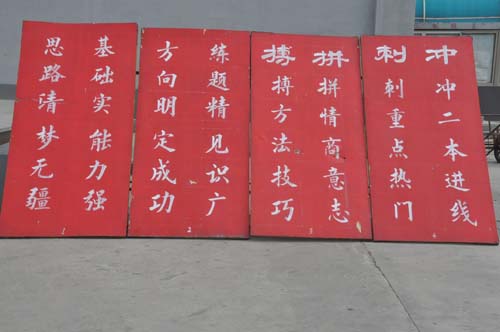 基础实能力强
思路清梦无疆
1
练题精见识广
方向明定成功
2
拼拼情商意志
搏搏方法技巧
3
冲冲二本进线
刺刺重点热门